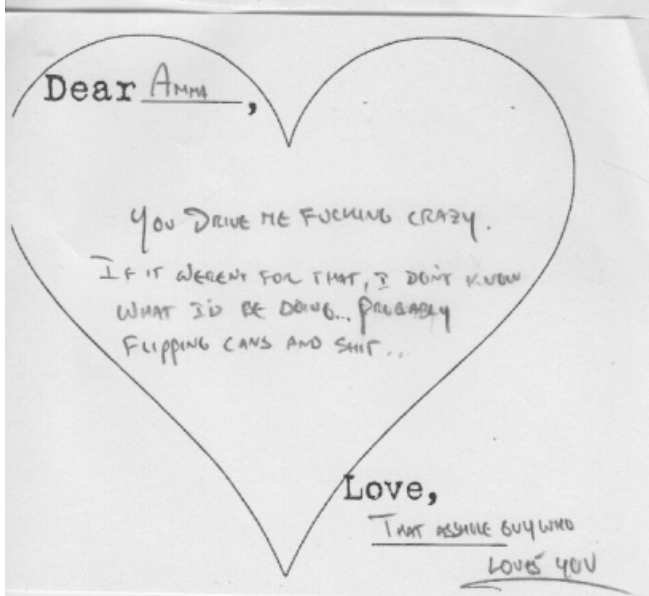 Dear Amma,
YOU DRIVE ME FUCKING CRAZY.
IF IT WERENT FOR THAT, I DON'T KNOW
WHAT I'D BE DOING... PROBABLY
FLIPPING CANS AND SHIT..
Love,
THAT ASSHOLE GUY WHO
LOVES YOU